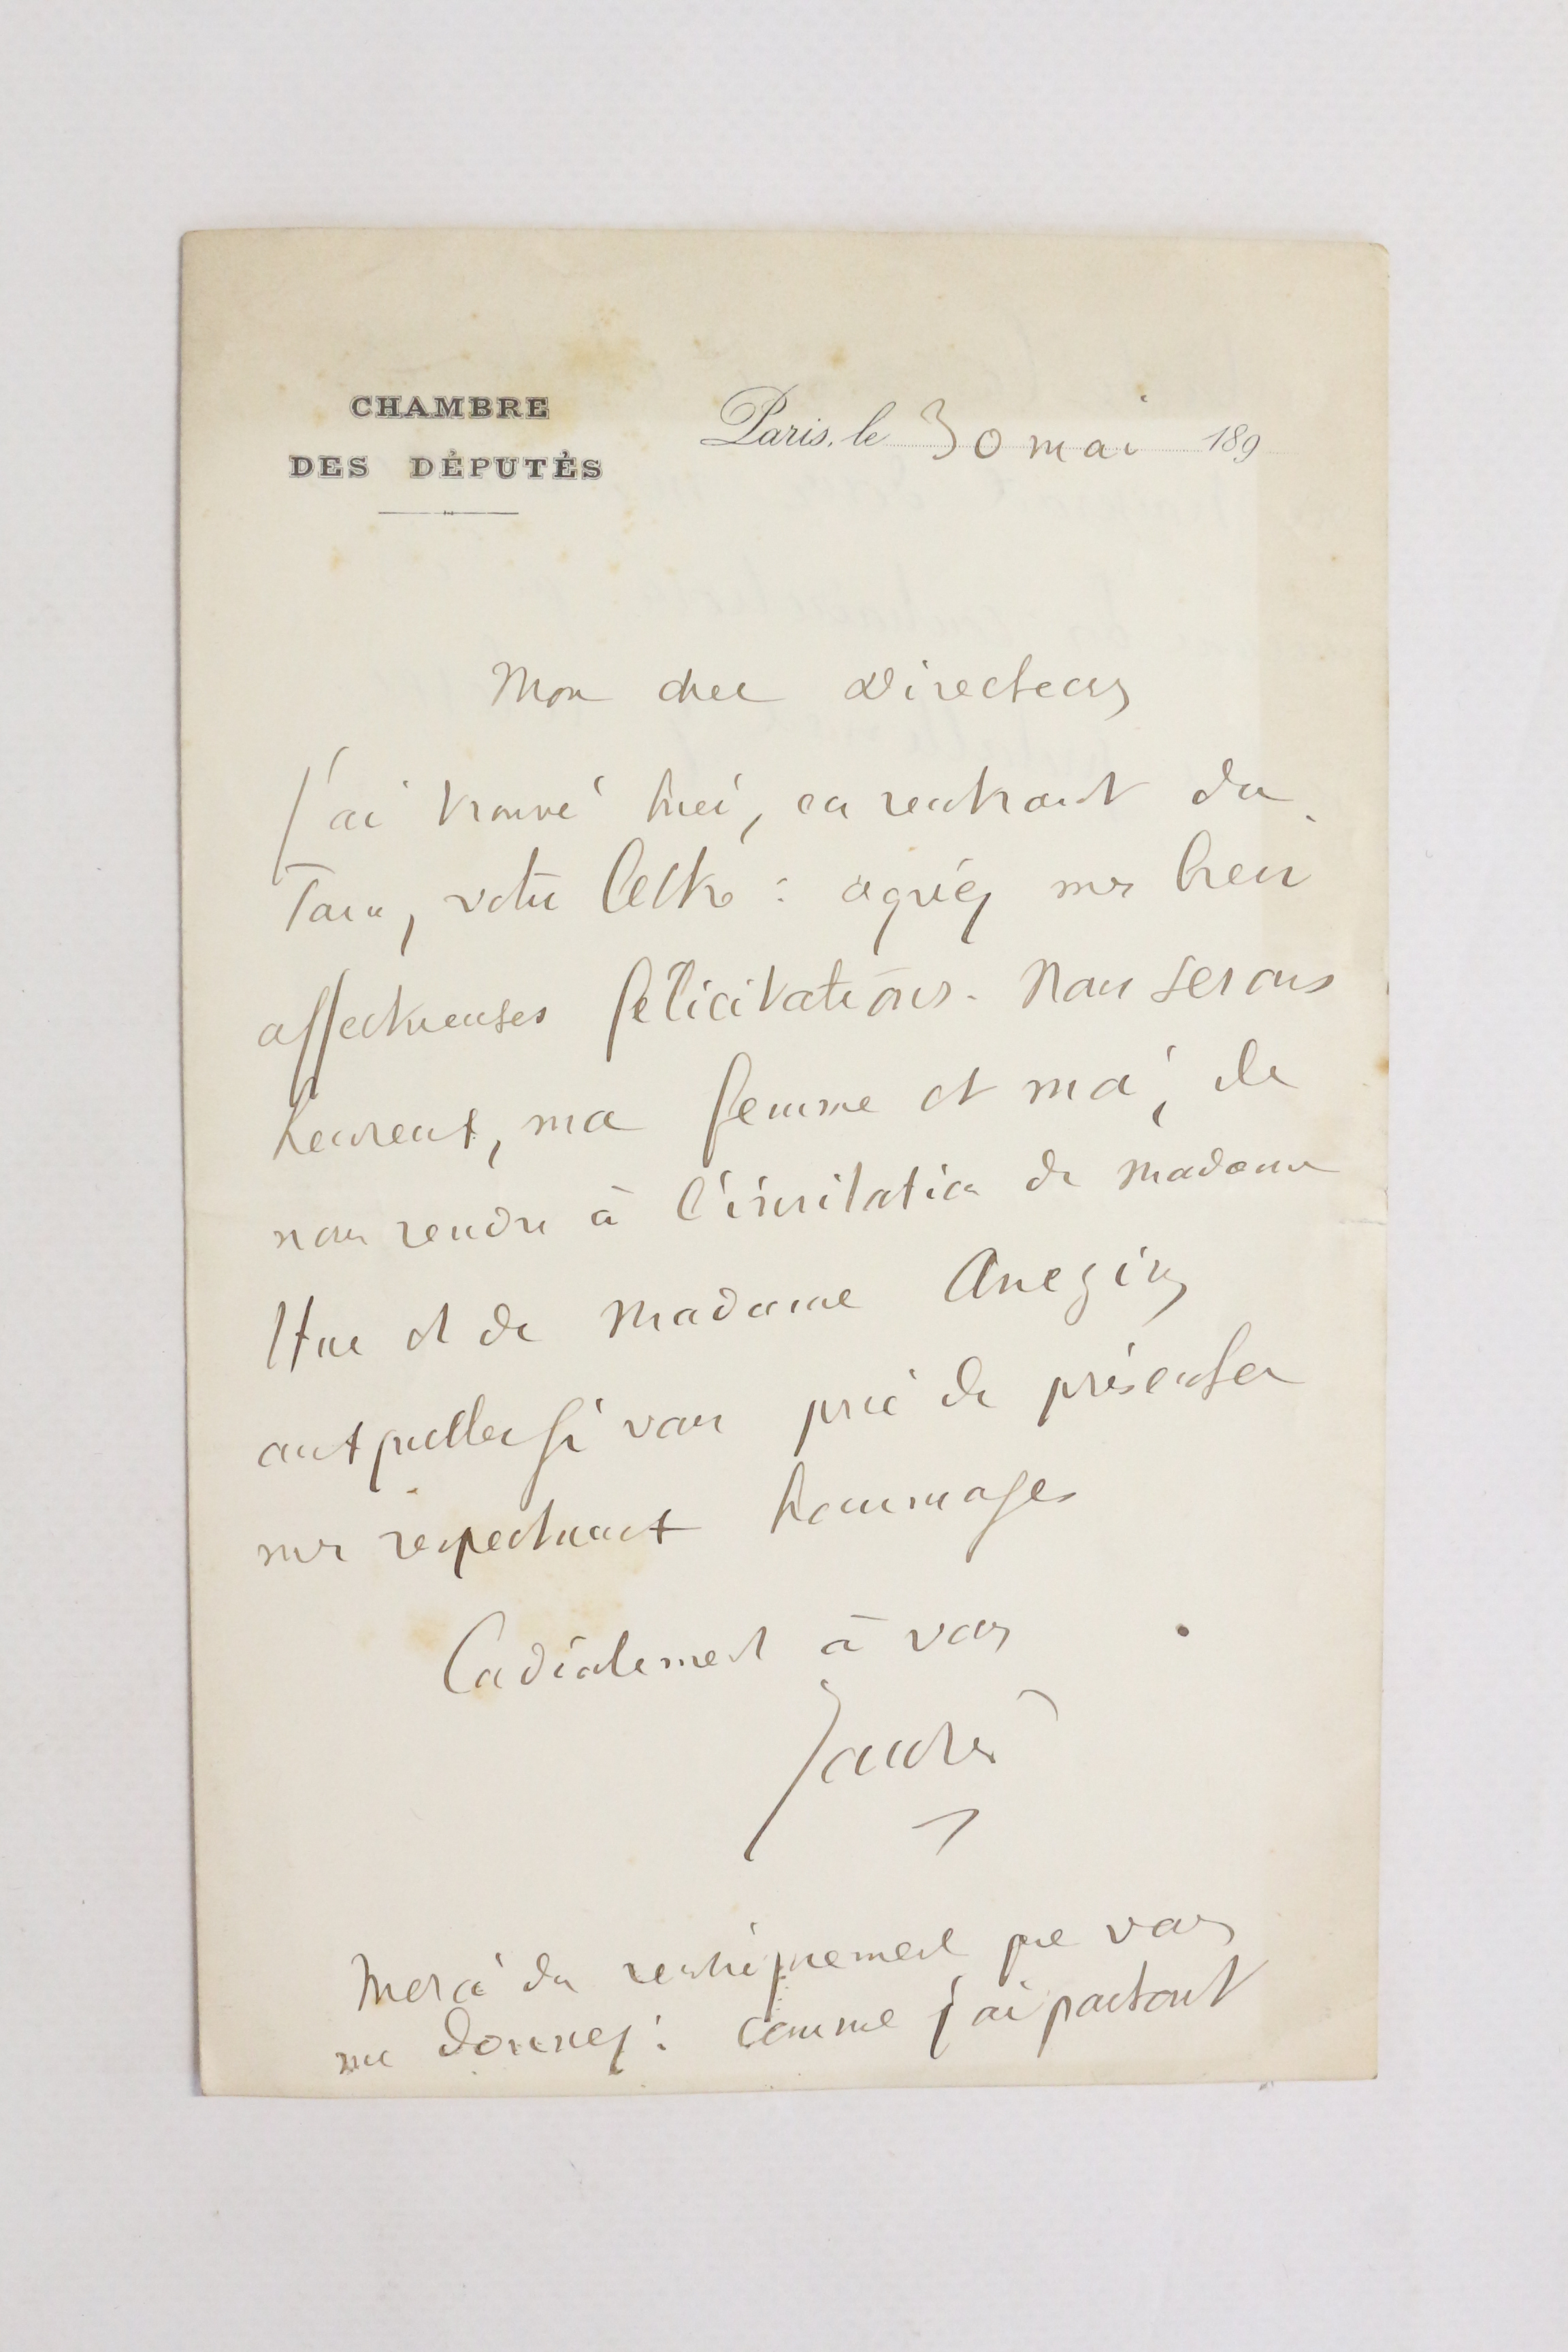 CHAMBRE
DES DÉPUTÉS
Paris, le 30 mai 189
Mon cher Directeur
J'ai trouvé hier, en rentrant du
Tarn, votre lettre : agréez mes bien
affectueuses félicitations. Nous serons
heureux, ma femme et moi, de
nous rendre à l'invitation de Madame
Hue et de Madame
auxquelles je vous prie de présenter
mes respectueux hommages
Cordialement à vous
Jaurès
Merci du renseignement que vous
me donnez : comme j'ai partout